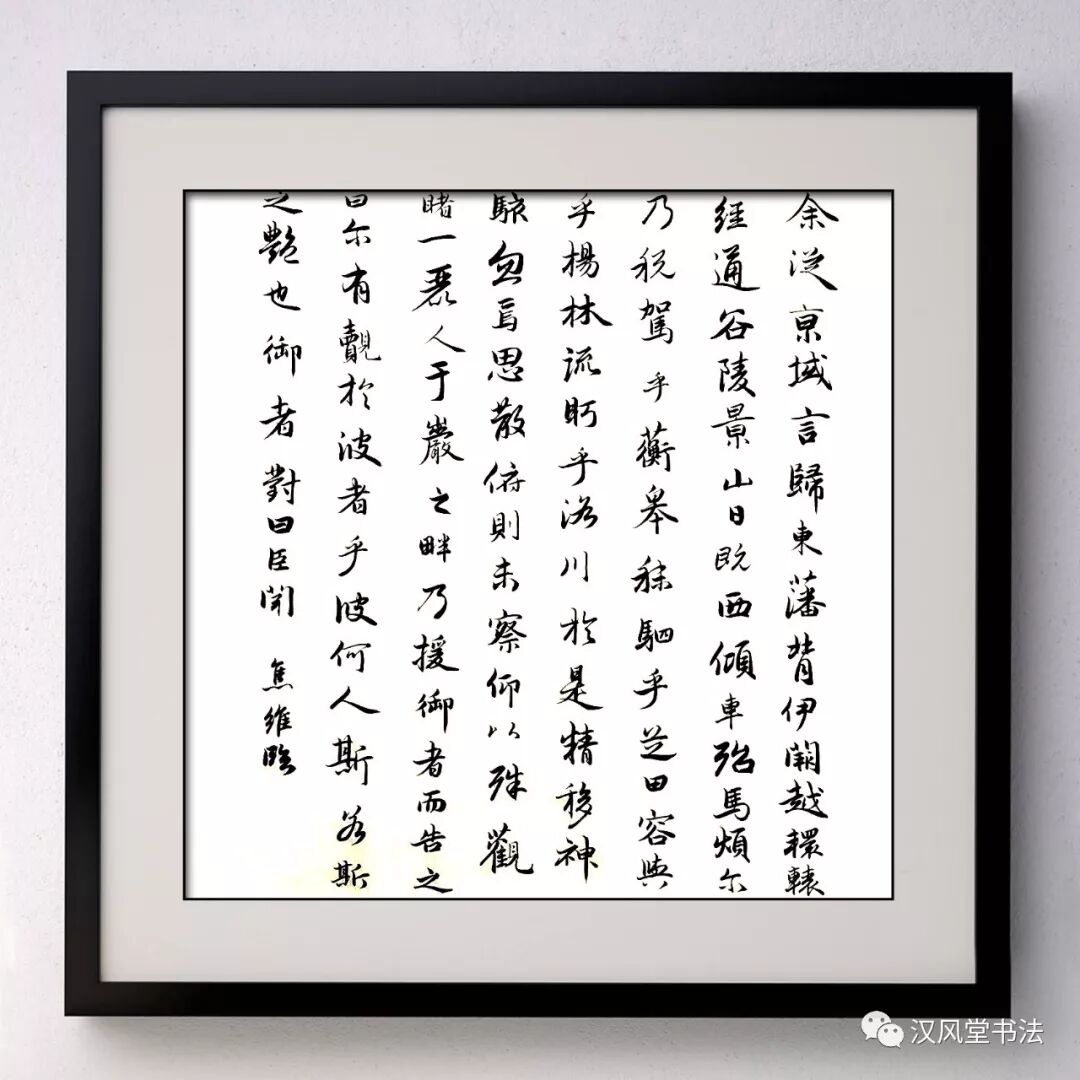 余從京域言歸東藩背伊闕越轘轅
經通谷陵景山日既西傾車殆馬煩尔
乃税駕乎蘅皋秣駟乎芝田容與
乎楊林流眄乎洛川於是精移神
駭忽焉思散俯則未察仰以殊觀
睹一麗人于巖之畔乃援御者而告之
曰尔有覿於彼者乎彼何人斯若斯
之艷也御者對曰臣聞 焦維臨
汉风堂书法